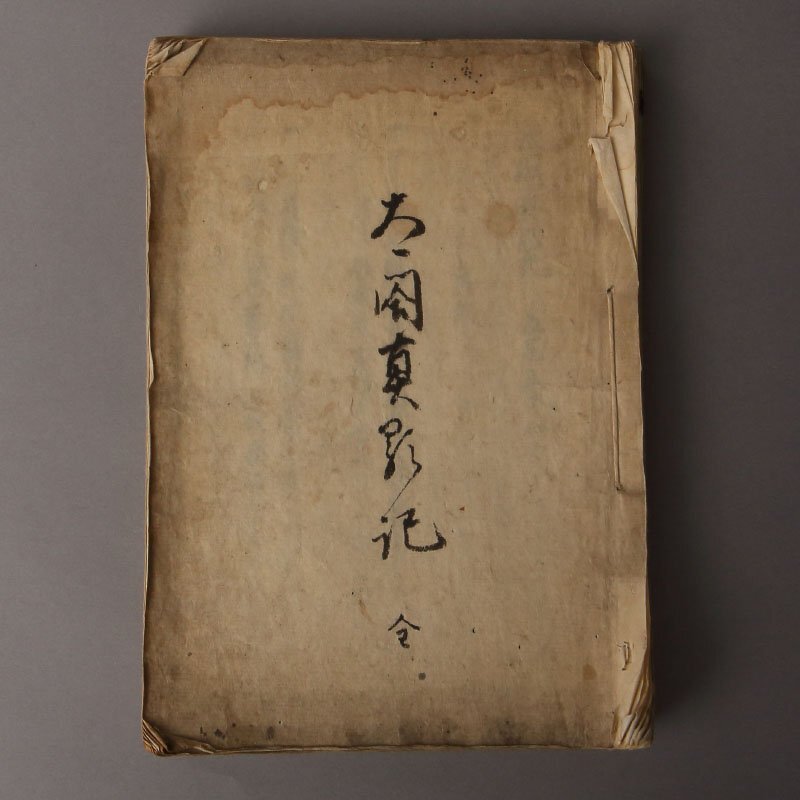 太閤真顕記
全